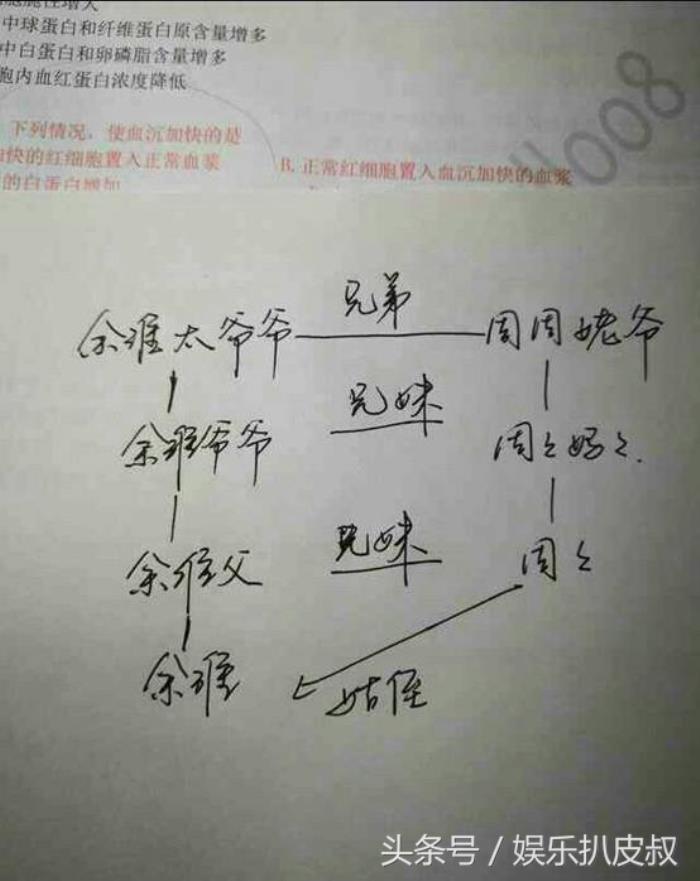 胞脆性增大
中球蛋白和纤维蛋白原含量增多
中白蛋白和卵磷脂含量增多
胞内血红蛋白浓度降低
8001
下列情况，使血沉加快的是
快的红细胞置入正常血浆
B. 正常红细胞置入血沉加快的血浆
的白蛋白增加
余淮太爷爷 兄弟 周周姥爷
余淮爷爷 兄妹 周々妈々.
余淮父 兄妹 周々
余淮 姑侄
头条号 / 娱乐扒皮叔